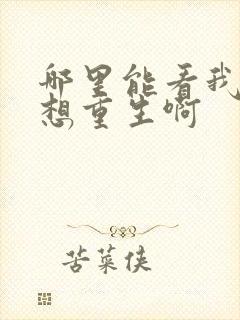 哪里能看我
想重生啊
苦菜侠